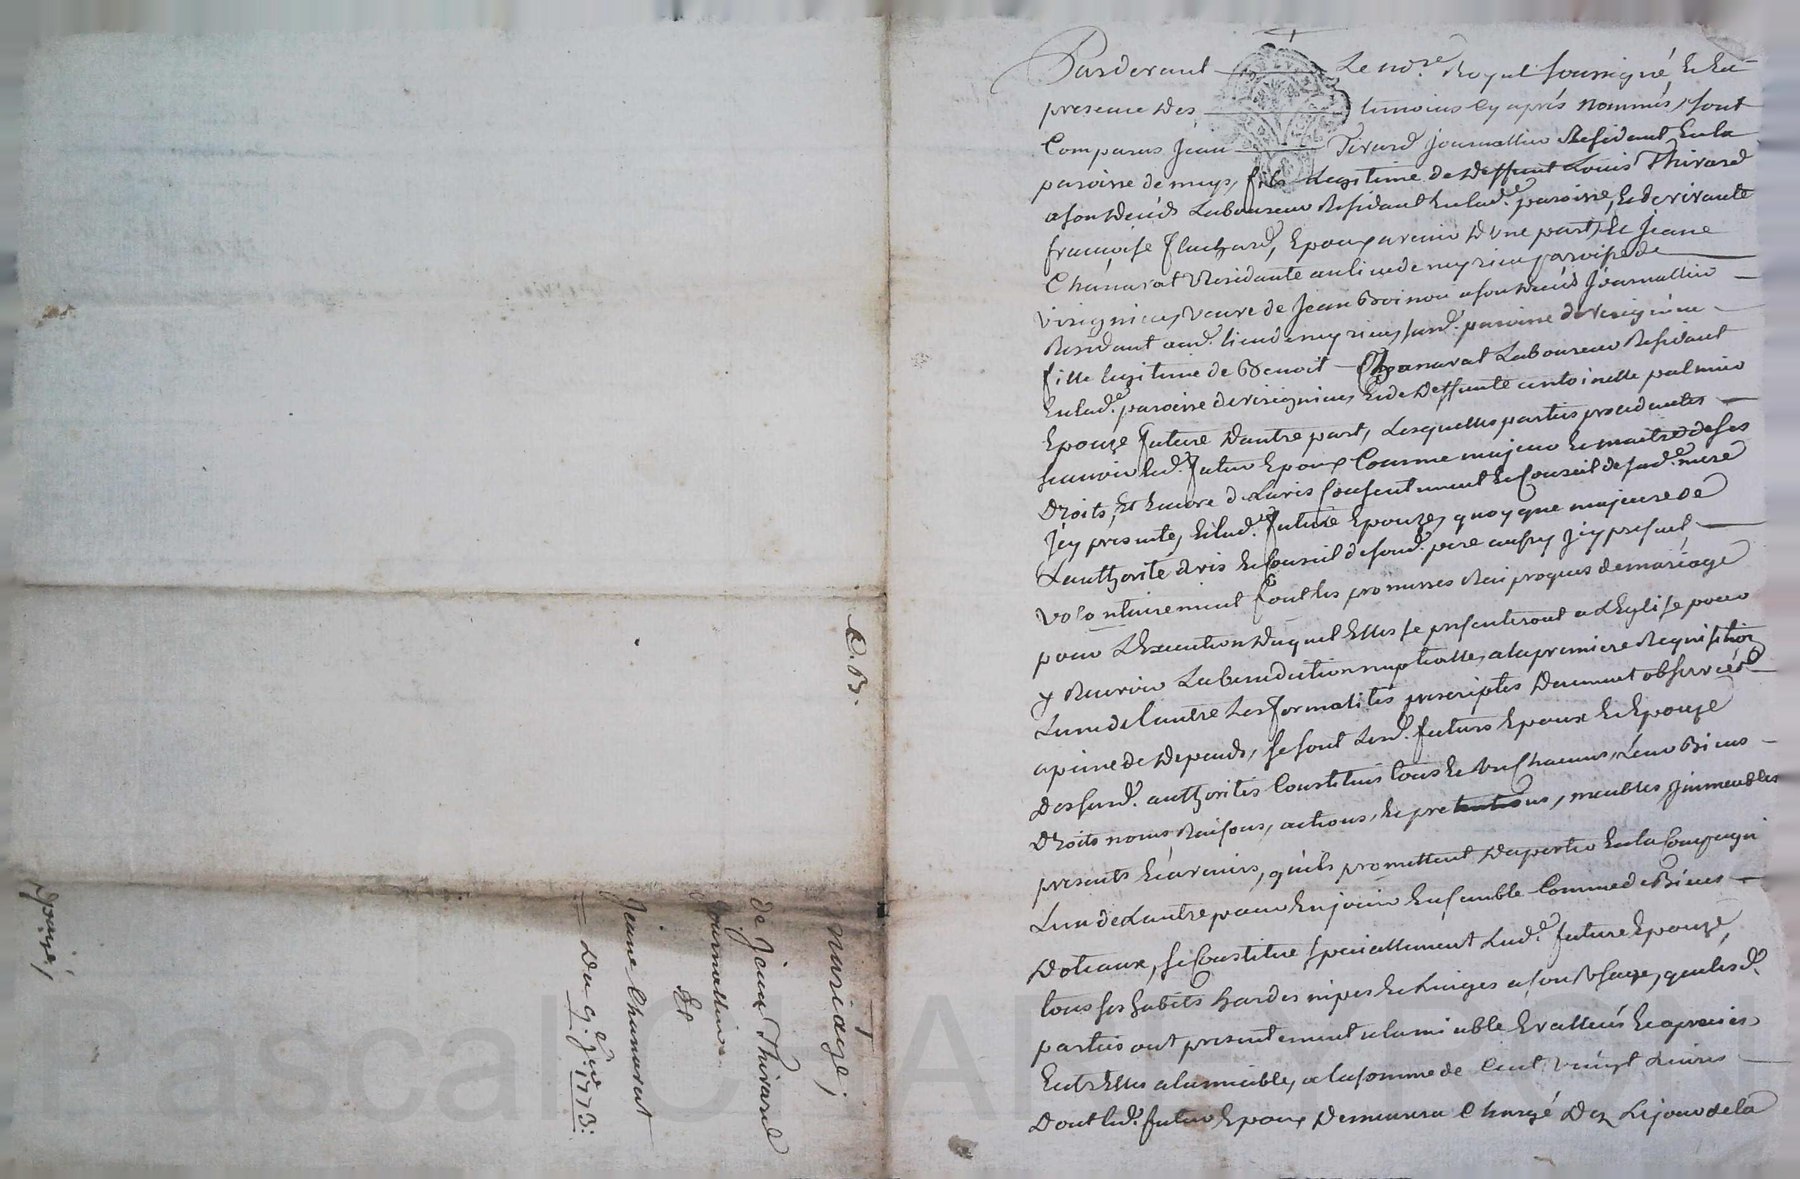 Pardevant Le no.re Royal soussigné, Et En
presence Des temoins Cy après nommés, sont
Comparus Jean Tirard journallier Residant Enla
paroisse de mys, fils Legitime de Deffunt Louis Thirard
a son Deceds Laboureur Residant Enlad.e paroisse, Et de vivante
françoise fluchard, Epoux avenir D'une part, Et Jeane
Chanarat Residante au lieu de paroisse de
Veuve de Jean a son Deceds Journallier
Residant aud. lieu de susd. paroisse de
fille legitime de Benoit Chanarat Laboureur Residant
Enlad.e paroisse de Et de Deffunte antoinette palmier
Epouze future D'autre part, Lesquelles parties procedantes
scavoir led. futur Epoux Comme majeur Et maitre de ses
Droits, Et Encore de L'avis Consentement Et Conseil de sad.e mere
Jcy presente, Et lad.e future Epouze, quoyque majeure de
L'authorité avis Et Conseil de sond. pere aussy Jcy present
volontairement font les promesses Reciproques de mariage
pour L'Execution Duquel Elles se presenteront a L'Eglise pour
y Recevoir La benediction nuptialle, a la premiere Requisition
L'un de l'autre Les formalités prescriptes Duement observées
a peine de Depends, se sont Lesd. futurs Epoux Et Epouze
Des susd. authorités Constitués tous Et Un Chacuns, Leur Biens
Droits noms Raisons, actions, Et pretentions, meubles, Jmmeubles
presents Et avenirs, qu'ils promettent D'aporter En la Compagnie
L'un de L'autre pour En jouir Ensemble Comme de Biens
Dotaux, se Constitue specialement Lad.e future Epouze,
tous ses habits hardes nipes Et Linges a son Usage, que lesd.
parties ont presentement Evalués Et apreciés
Entr'Elles a L'amiable, a la somme de Cent vingt Livres
Dont led. futur Epoux Demeurera Chargé Dez Le jour de la
C. B.
mariage,
de Jean Thirard
journallier
Et
Jeane Chanarat
Du 9.e J.er 1773:
Epouzé,
Pascal